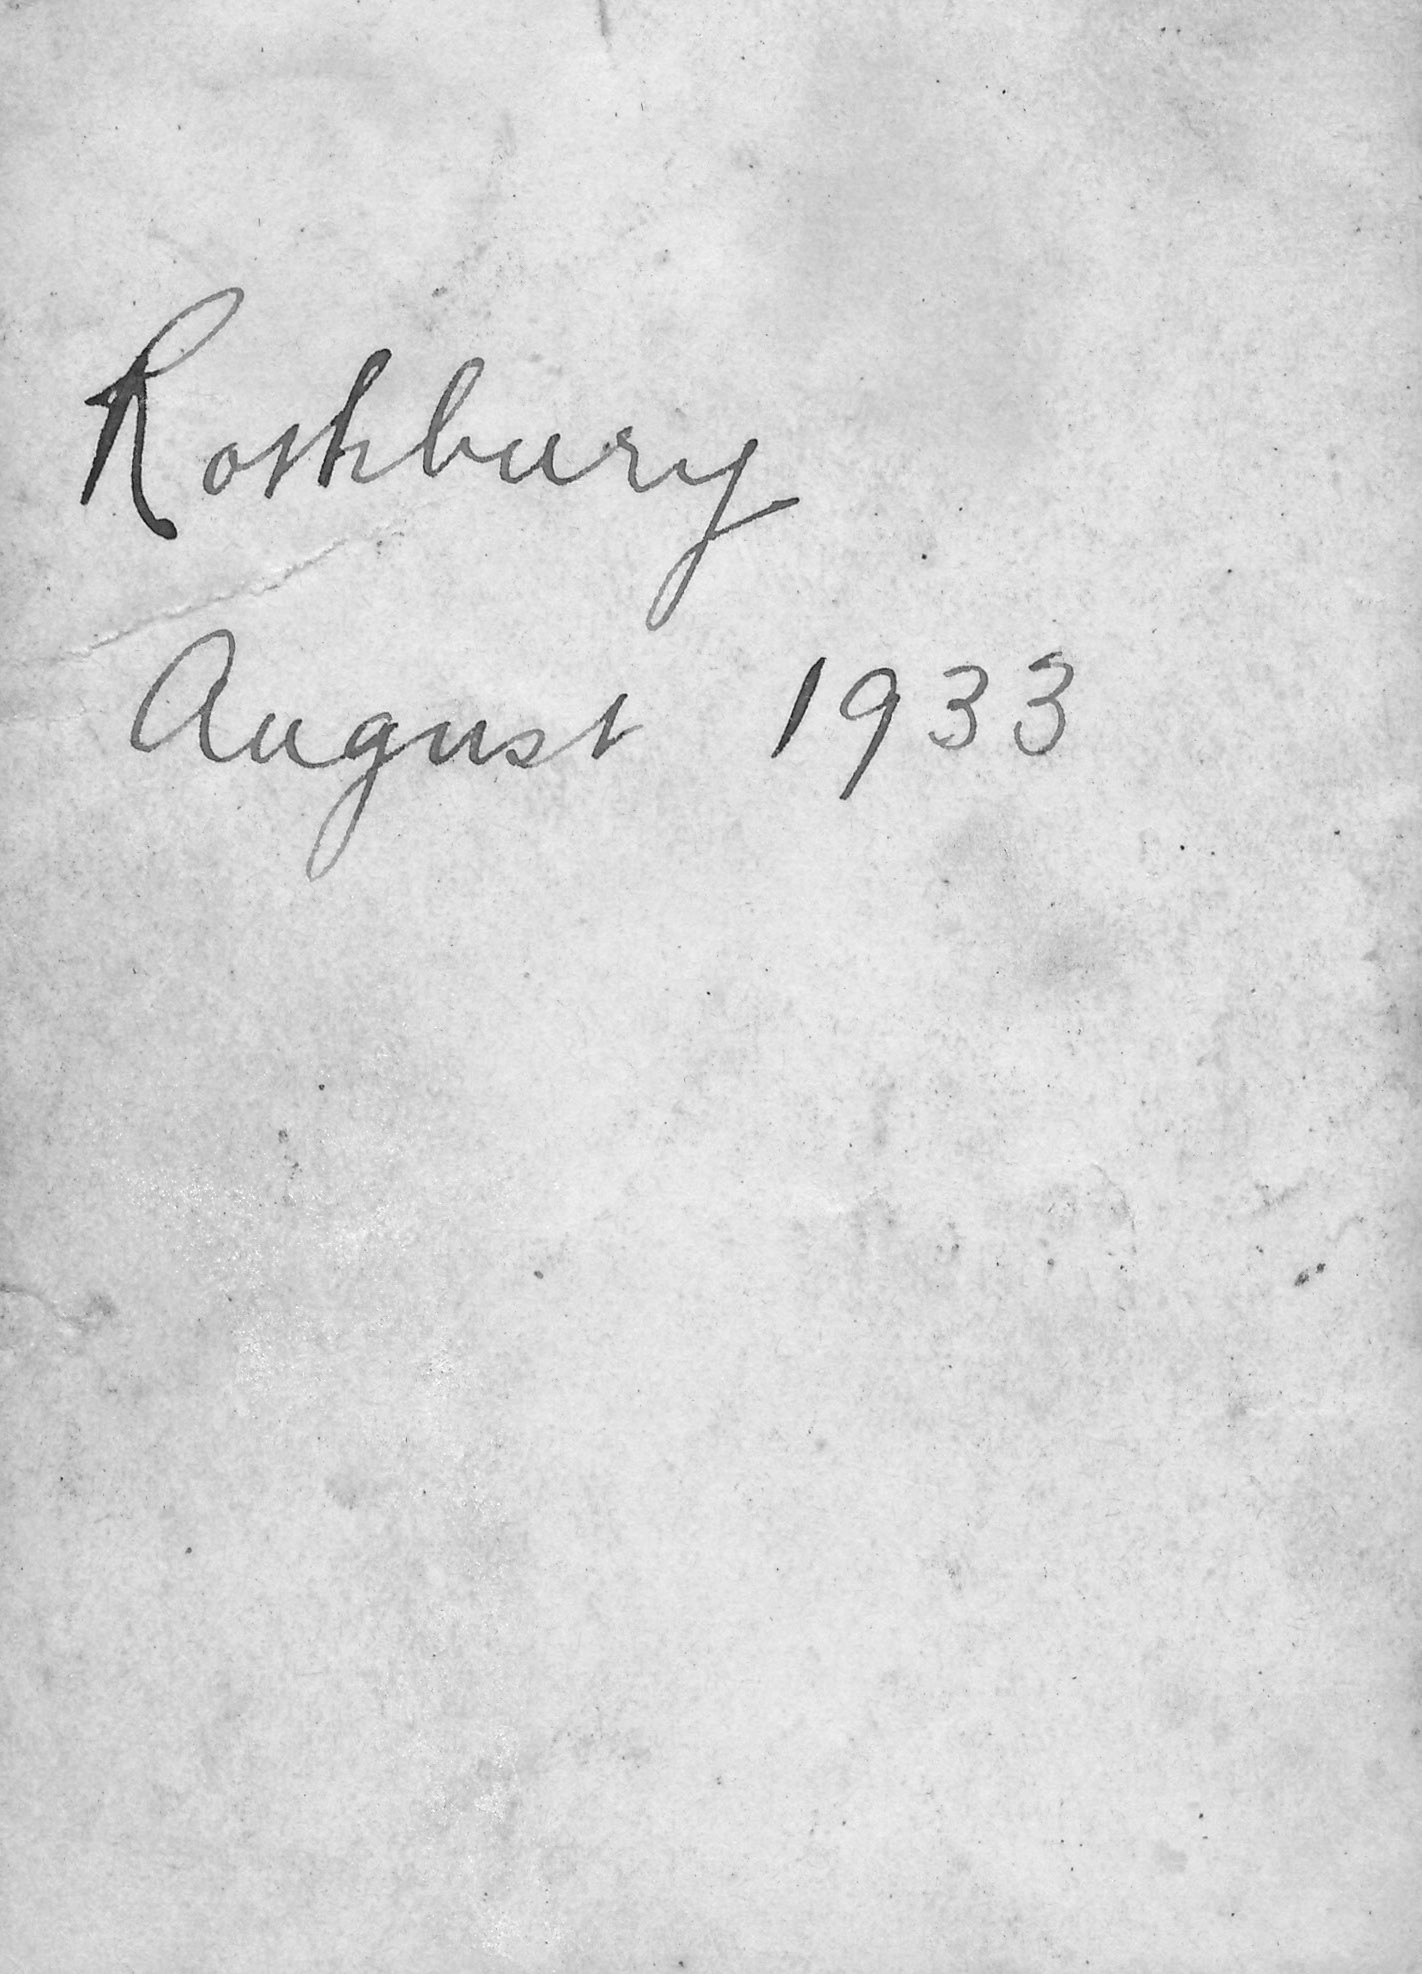 Rothbury
August 1933